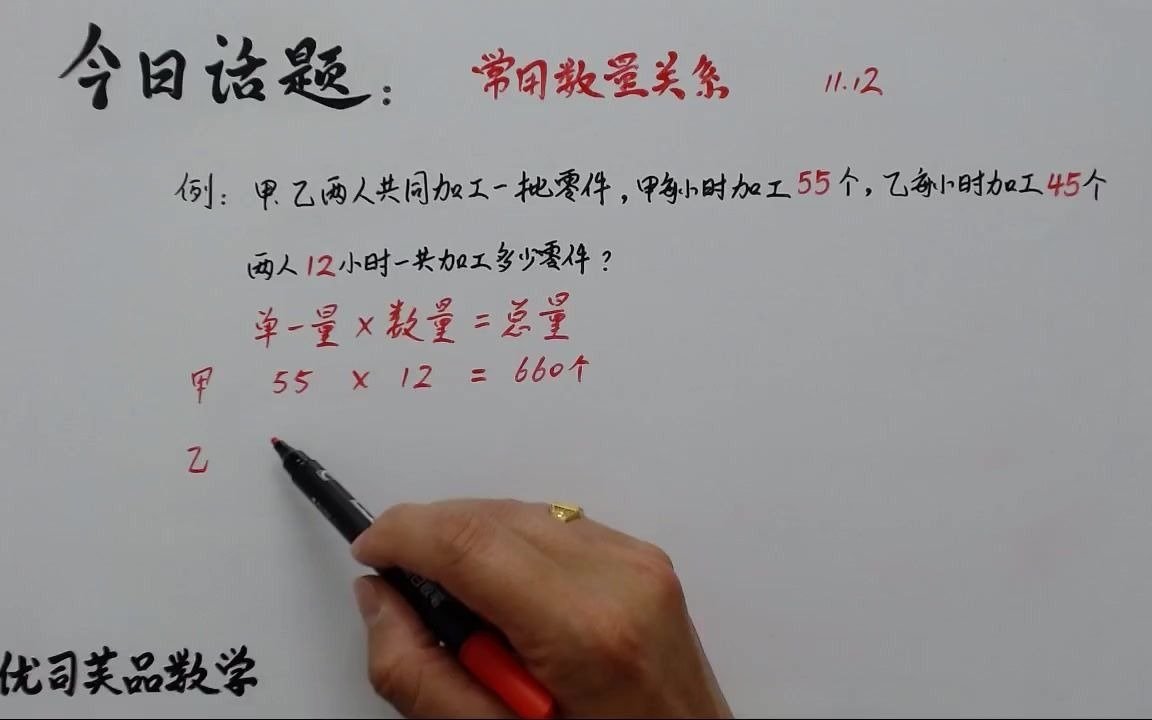 今日话题： 常用数量关系 11.12
例：甲、乙两人共同加工一批零件，甲每小时加工55个，乙每小时加工45个
两人12小时一共加工多少零件？
单一量×数量=总量
甲 55 × 12 = 660个
乙
优司芙品数学